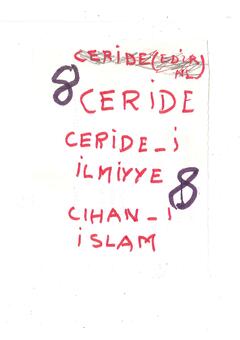 CERİDE(EDİLR)
NL)
8
CERİDE
CERİDE_İ
İLMİYYE
8
CIHAN_İ
İSLAM